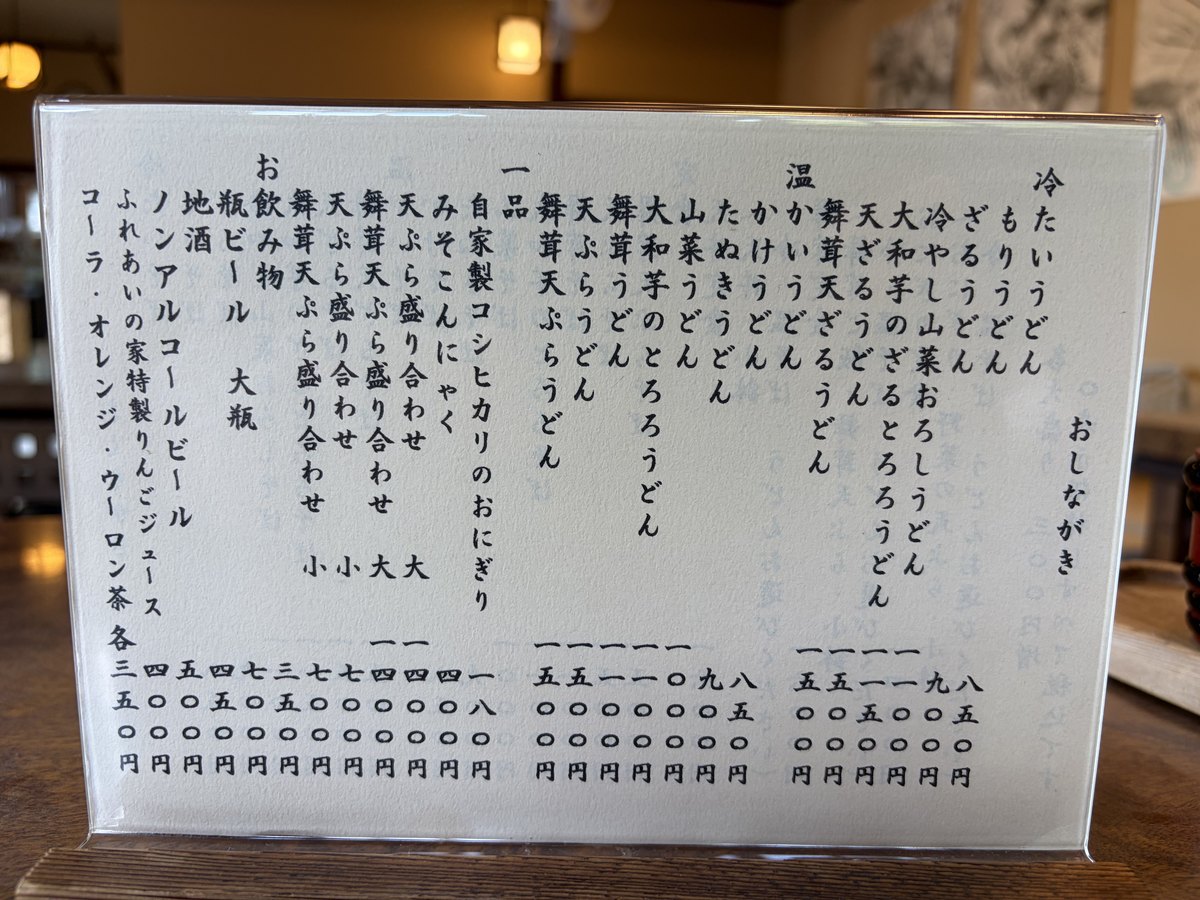 おしながき
冷たいうどん
もりうどん 八五〇円
ざるうどん 九〇〇円
冷やし山菜おろしうどん 一一〇〇円
大和芋のざるとろろうどん 一一五〇円
天ざるうどん 一五〇〇円
舞茸天ざるうどん 一五〇〇円
温かいうどん
かけうどん 八五〇円
たぬきうどん 九〇〇円
山菜うどん 一〇〇〇円
大和芋のとろろうどん 一一〇〇円
舞茸うどん 一一〇〇円
天ぷらうどん 一五〇〇円
舞茸天ぷらうどん 一五〇〇円
一品
自家製コシヒカリのおにぎり 一八〇円
みそこんにゃく 四〇〇円
天ぷら盛り合わせ 大 一四〇〇円
舞茸天ぷら盛り合わせ 大 一四〇〇円
天ぷら盛り合わせ 小 七〇〇円
舞茸天ぷら盛り合わせ 小 七〇〇円
お飲み物 三五〇円
瓶ビール 大瓶 七〇〇円
地酒 四五〇円
ノンアルコールビール 五〇〇円
ふれあいの家特製りんごジュース 四〇〇円
コーラ・オレンジ・ウーロン茶 各三五〇円